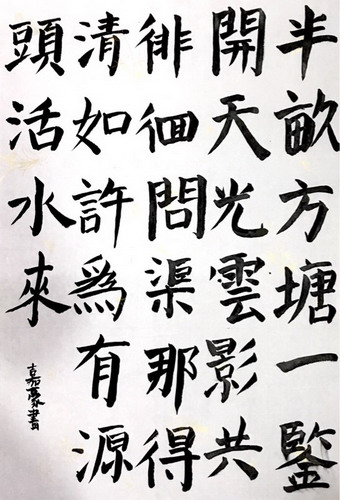 半畝方塘一鑒
開天光雲影共
徘徊問渠那得
清如許為有源
頭活水來
嘉蒙書